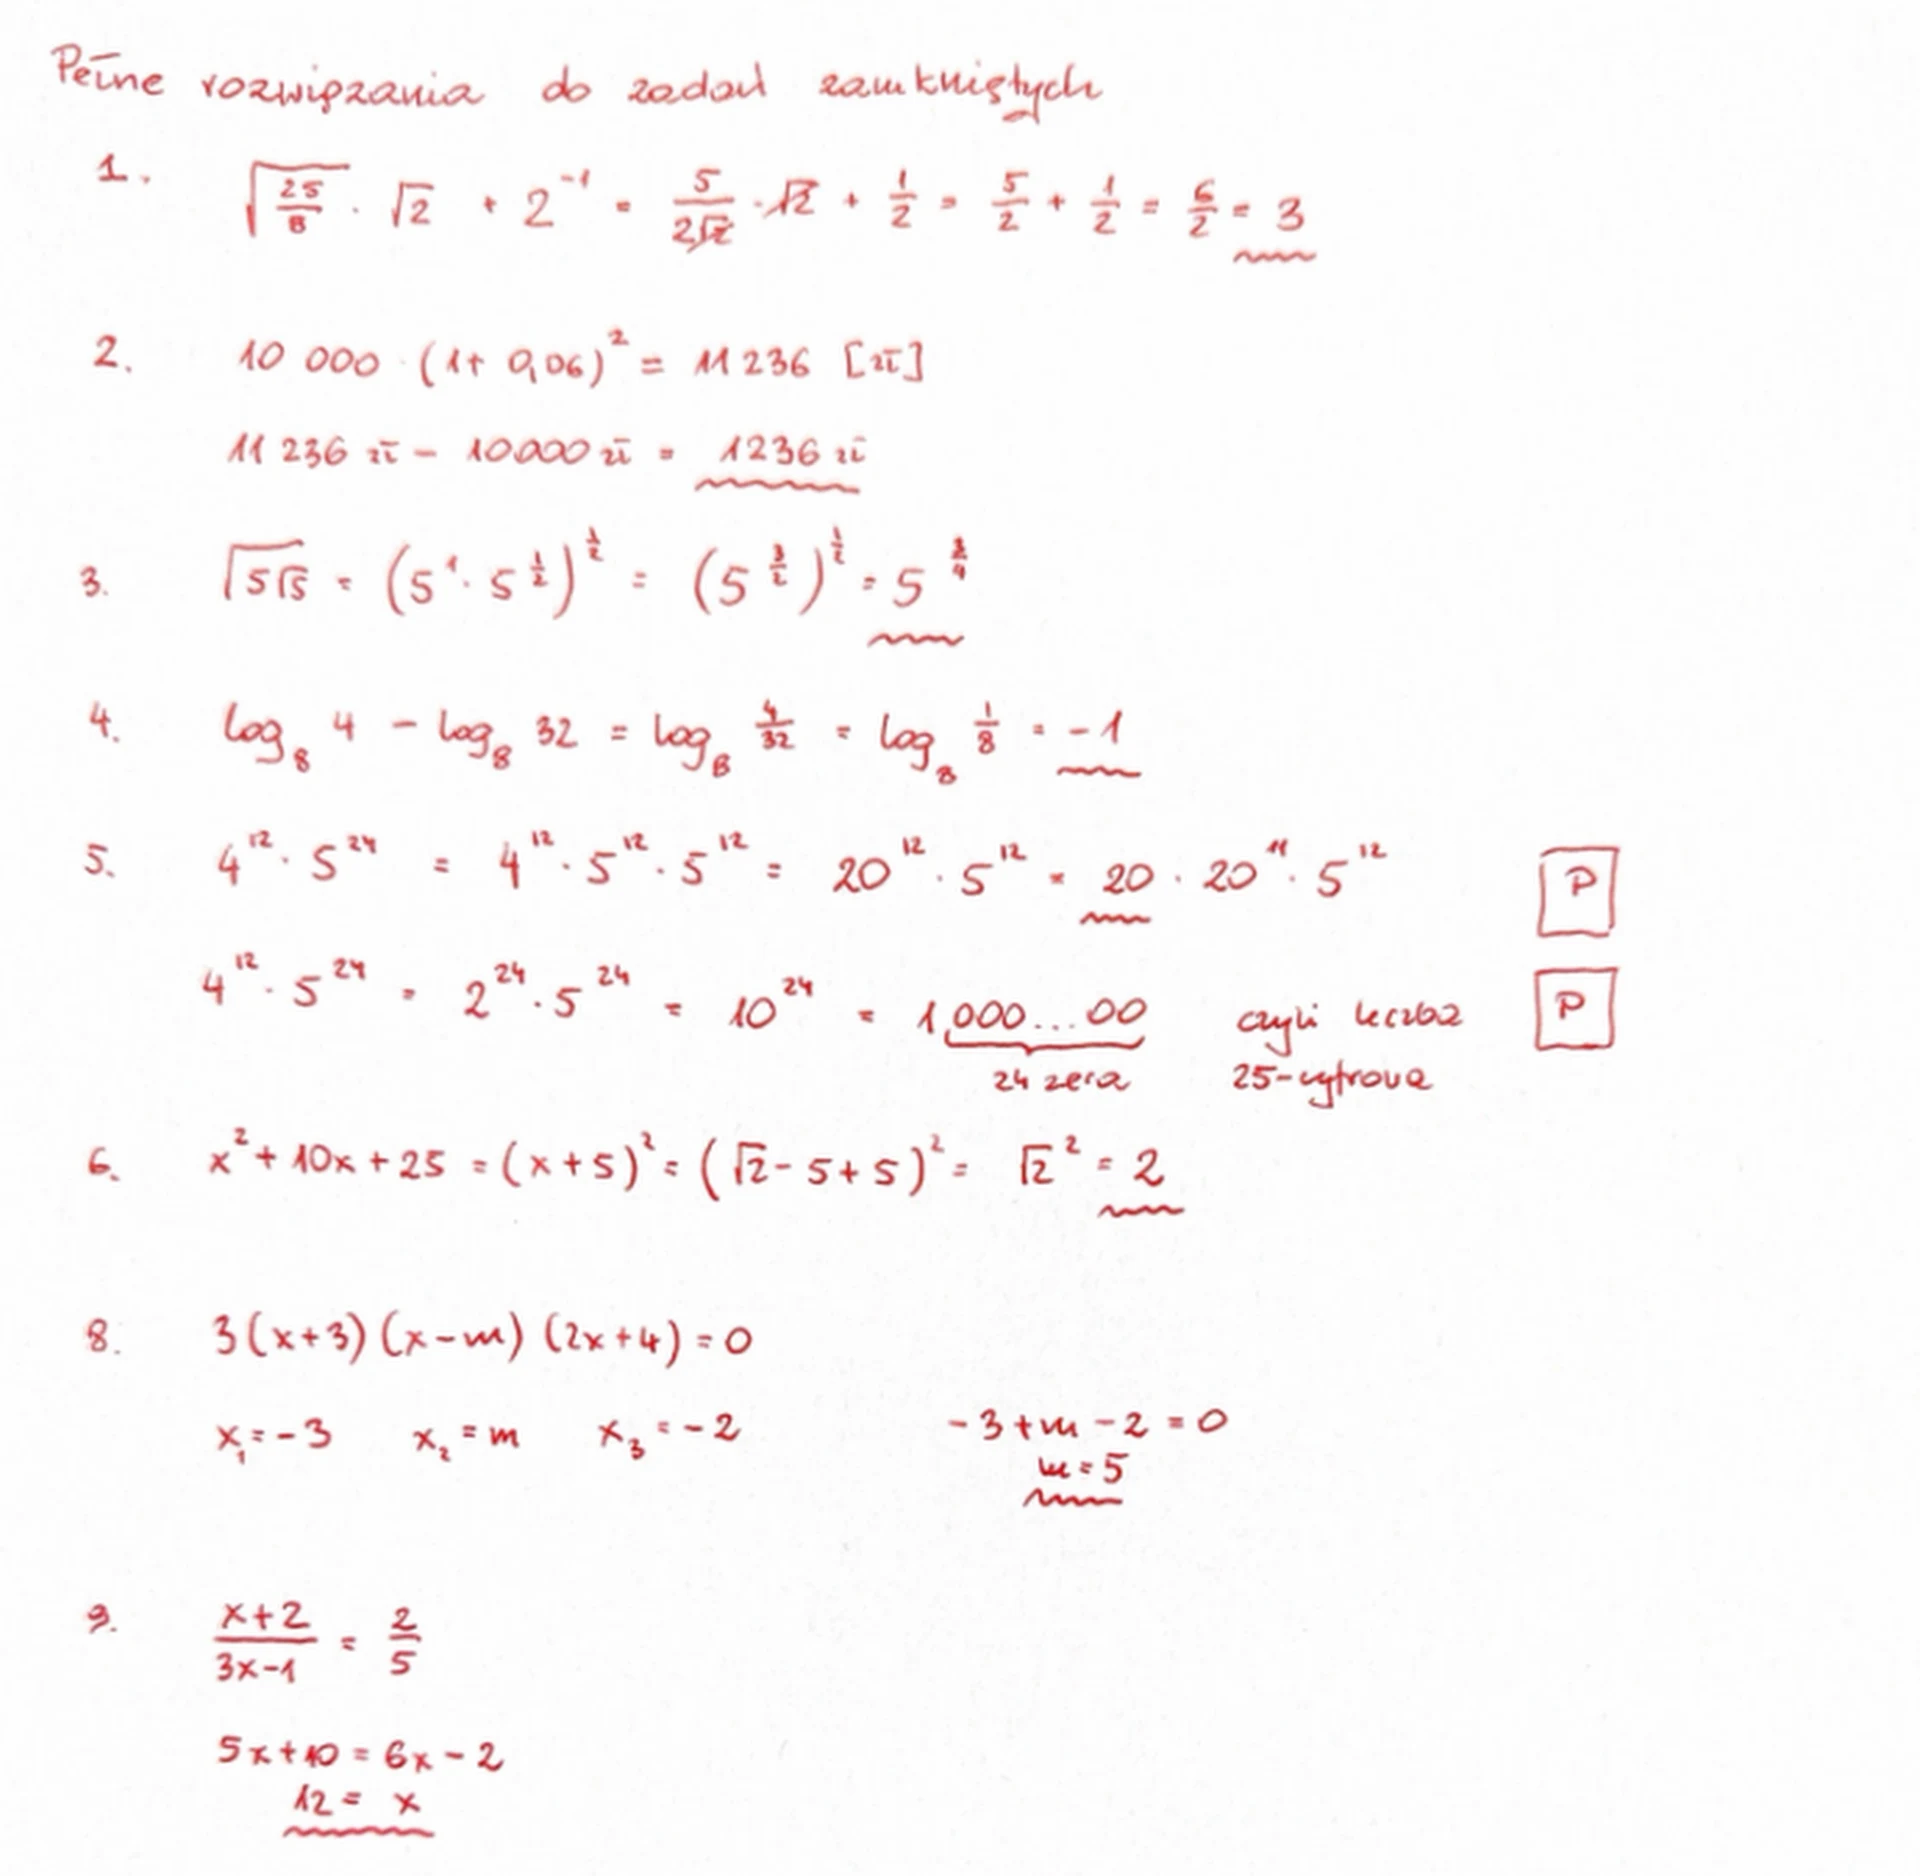 Pełne rozwiązania do zadań zamkniętych
1. √(25/8) · √2 + 2⁻¹ = 5/(2√2) · √2 + 1/2 = 5/2 + 1/2 = 6/2 = 3
2. 10 000 · (1 + 0,06)² = 11 236 [zł]
11 236 zł − 10000 zł = 1236 zł
3. √(5√5) = (5¹ · 5^(1/2))^(1/2) = (5^(3/2))^(1/2) = 5^(3/4)
4. log₈ 4 − log₈ 32 = log₈ 4/32 = log₈ 1/8 = −1
5. 4¹² · 5²⁴ = 4¹² · 5¹² · 5¹² = 20¹² · 5¹² = 20 · 20¹¹ · 5¹² P
4¹² · 5²⁴ = 2²⁴ · 5²⁴ = 10²⁴ = 1 000...00 czyli liczba P
24 zera 25-cyfrowa
6. x² + 10x + 25 = (x + 5)² = (√2 − 5 + 5)² = √2² = 2
8. 3(x+3)(x−m)(2x+4) = 0
x₁ = −3 x₂ = m x₃ = −2 −3 + m − 2 = 0
m = 5
9. (x+2)/(3x−1) = 2/5
5x + 10 = 6x − 2
12 = x